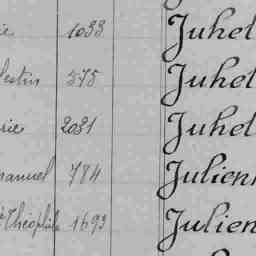 ie 1033 Juhel
lestin 575 Juhel
rie 2031 Juhel
manuel 784 Julien
Théophile 1693 Julien